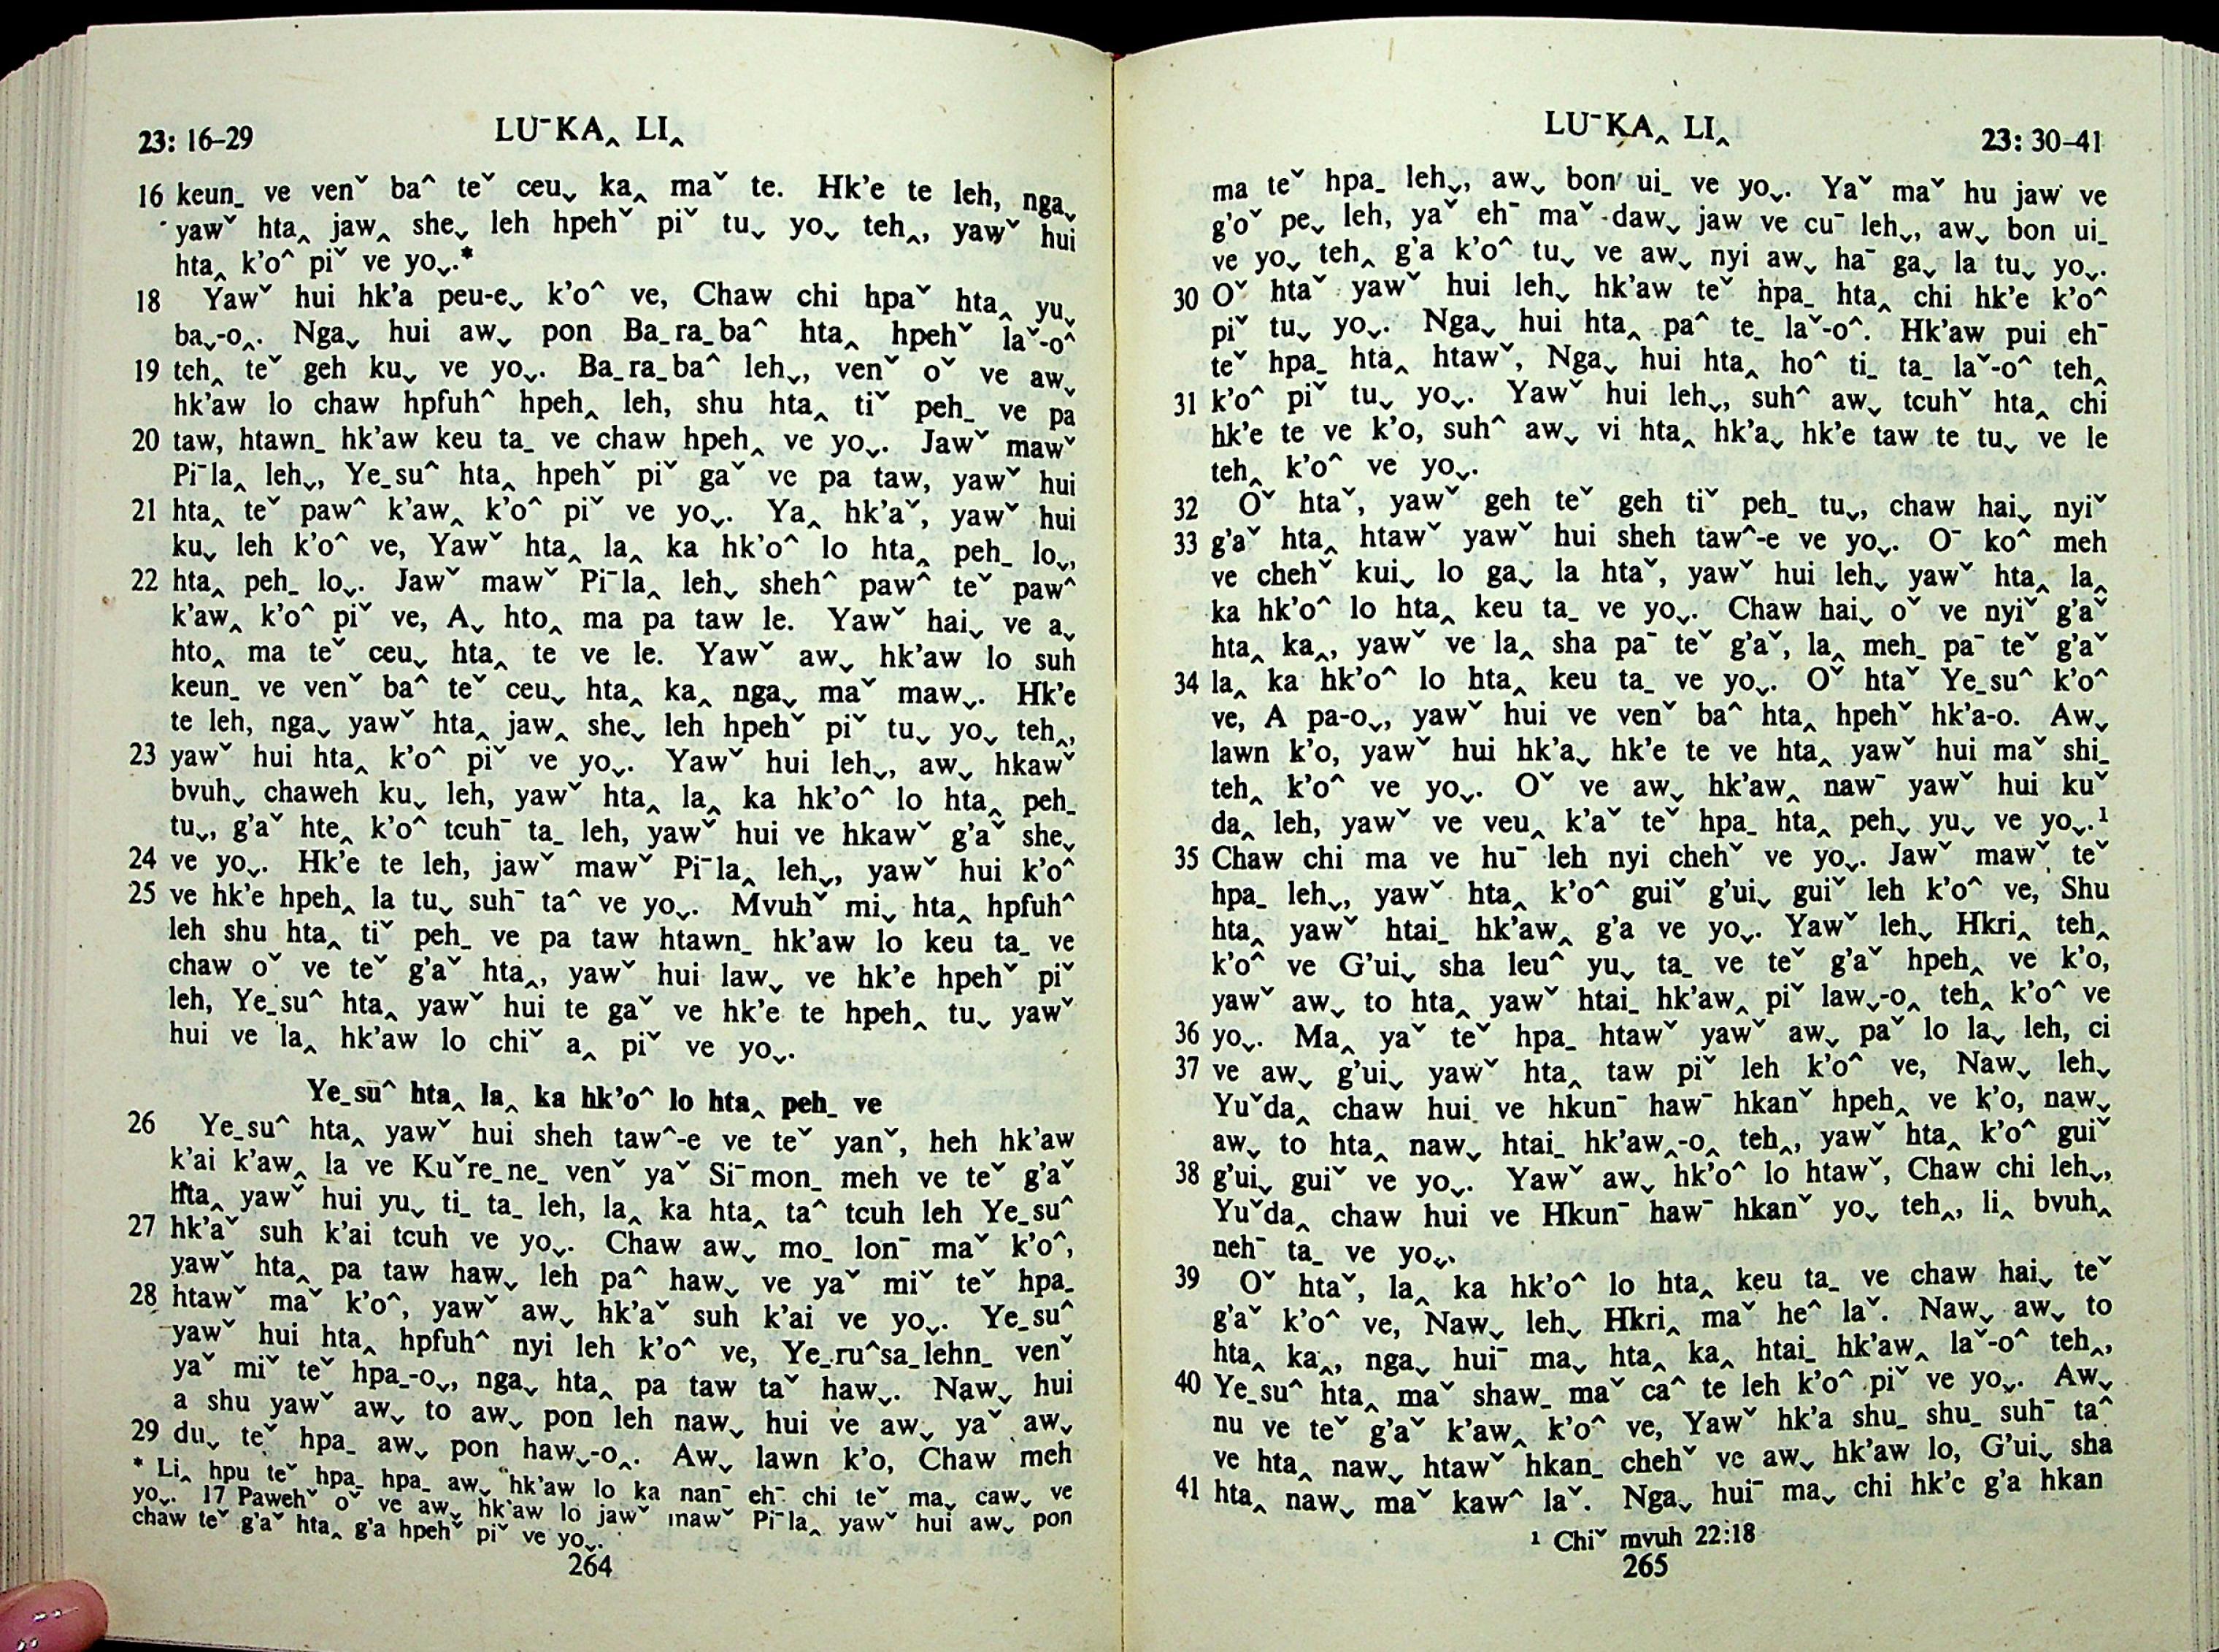 23: 16–29
LUˉKA‸ LI‸
16 keun_ ve venˇ ba^ teˇ ceuˬ ka‸ maˇ te. Hk’e te leh, ngaˬ
yawˇ hta‸ jaw‸ sheˬ leh hpehˇ piˇ tuˬ yoˬ teh‸, yawˇ hui
hta‸ k’o^ piˇ ve yoˬ.*
18 Yawˇ hui hk’a peu-eˬ k’o^ ve, Chaw chi hpaˇ hta‸ yuˬ
baˬ-o‸. Ngaˬ hui awˬ pon Ba_ra_ba^ hta‸ hpehˇ laˇ-o^
19 teh‸ teˇ geh kuˬ ve yoˬ. Ba_ra_ba^ lehˬ, venˇ oˇ ve awˬ
hk’aw lo chaw hpfuh^ hpeh‸ leh, shu hta‸ tiˇ peh_ ve pa
20 taw, htawn_ hk’aw keu ta_ ve chaw hpeh‸ ve yoˬ. Jawˇ mawˇ
Piˉla‸ lehˬ, Ye_su^ hta‸ hpehˇ piˇ gaˇ ve pa taw, yawˇ hui
21 hta‸ teˇ paw^ k’aw‸ k’o^ piˇ ve yoˬ. Ya‸ hk’aˇ, yawˇ hui
kuˬ leh k’o^ ve, Yawˇ hta‸ la‸ ka hk’o^ lo hta‸ peh_ loˬ,
22 hta‸ peh_ loˬ. Jawˇ mawˇ Piˉla‸ lehˬ sheh^ paw^ teˇ paw^
k’aw‸ k’o^ piˇ ve, Aˬ hto‸ ma pa taw le. Yawˇ haiˬ ve aˬ
hto‸ ma teˇ ceuˬ hta‸ te ve le. Yawˇ awˬ hk’aw lo suh
keun_ ve venˇ ba^ teˇ ceuˬ hta‸ ka‸ ngaˬ maˇ mawˬ. Hk’e
te leh, ngaˬ yawˇ hta‸ jaw‸ sheˬ leh hpehˇ piˇ tuˬ yoˬ teh‸,
23 yawˇ hui hta‸ k’o^ piˇ ve yoˬ. Yawˇ hui lehˬ, awˬ hkawˇ
bvuhˬ chaweh kuˬ leh, yawˇ hta‸ la‸ ka hk’o^ lo hta‸ peh_
tuˬ, g’aˇ hte‸ k’o^ tcuhˉ ta_ leh, yawˇ hui ve hkawˇ g’aˇ sheˬ
24 ve yoˬ. Hk’e te leh, jawˇ mawˇ Piˉla‸ lehˬ, yawˇ hui k’o^
25 ve hk’e hpeh‸ la tuˬ suhˉ ta^ ve yoˬ. Mvuhˇ miˬ hta‸ hpfuh^
leh shu hta‸ tiˇ peh_ ve pa taw htawn_ hk’aw lo keu ta_ ve
chaw oˇ ve teˇ g’aˇ hta‸, yawˇ hui lawˬ ve hk’e hpehˇ piˇ
leh, Ye_su^ hta‸ yawˇ hui te gaˇ ve hk’e te hpeh‸ tuˬ yawˇ
hui ve la‸ hk’aw lo chiˇ a‸ piˇ ve yoˬ.
Ye_su^ hta‸ la‸ ka hk’o^ lo hta‸ peh_ ve
26 Ye_su^ hta‸ yawˇ hui sheh taw^-e ve teˇ yanˇ, heh hk’aw
k’ai k’aw‸ la ve Kuˇre_ne_ venˇ yaˇ Siˉmon_ meh ve teˇ g’aˇ
hta‸ yawˇ hui yuˬ ti_ ta_ leh, la‸ ka hta‸ ta^ tcuh leh Ye_su^
27 hk’aˇ suh k’ai tcuh ve yoˬ. Chaw awˬ mo_ lonˉ maˇ k’o^,
yawˇ hta‸ pa taw hawˬ leh pa^ hawˬ ve yaˇ miˇ teˇ hpa_
28 htawˇ maˇ k’o^, yawˇ awˬ hk’aˇ suh k’ai ve yoˬ. Ye_su^
yawˇ hui hta‸ hpfuh^ nyi leh k’o^ ve, Ye_ru^sa_lehn_ venˇ
yaˇ miˇ teˇ hpa_-oˬ, ngaˬ hta‸ pa taw taˇ hawˬ. Nawˬ hui
a shu yawˇ awˬ to awˬ pon leh nawˬ hui ve awˬ yaˇ awˬ
29 duˬ teˇ hpa_ awˬ pon hawˬ-o‸. Awˬ lawn k’o, Chaw meh
* Li‸ hpu teˇ hpa_ hpa_ awˬ hk’aw lo ka nanˉ ehˉ chi teˇ maˬ cawˬ ve
yoˬ. 17 Pawehˇ oˇ ve awˬ hk’aw lo jawˇ mawˇ Piˉla‸ yawˇ hui awˬ pon
chaw teˇ g’aˇ hta‸ g’a hpehˇ piˇ ve yoˬ.
264
LUˉKA‸ LI‸
23: 30–41
ma teˇ hpa_ lehˬ, awˬ bon ui_ ve yoˬ. Yaˇ maˇ hu jaw ve
g’oˇ peˬ leh, yaˇ ehˉ maˇ dawˬ jaw ve cuˉ lehˬ, awˬ bon ui_
ve yoˬ teh‸ g’a k’o^ tuˬ ve awˬ nyi awˬ haˉ gaˬ la tuˬ yoˬ.
30 Oˇ htaˇ yawˇ hui lehˬ hk’aw teˇ hpa_ hta‸ chi hk’e k’o^
piˇ tuˬ yoˬ. Ngaˬ hui hta‸ pa^ te_ laˇ-o^. Hk’aw pui ehˉ
teˇ hpa_ hta‸ htawˇ, Ngaˬ hui hta‸ ho^ ti_ ta_ laˇ-o^ teh‸
31 k’o^ piˇ tuˬ yoˬ. Yawˇ hui lehˬ, suh^ awˬ tcuhˇ hta‸ chi
hk’e te ve k’o, suh^ awˬ vi hta‸ hk’aˬ hk’e taw te tuˬ ve le
teh‸ k’o^ ve yoˬ.
32 Oˇ htaˇ, yawˇ geh teˇ geh tiˇ peh_ tuˬ, chaw haiˬ nyiˇ
33 g’aˇ hta‸ htawˇ yawˇ hui sheh taw^-e ve yoˬ. Oˉ ko^ meh
ve chehˇ kuiˬ lo gaˬ la htaˇ, yawˇ hui lehˬ yawˇ hta‸ la‸
ka hk’o^ lo hta‸ keu ta_ ve yoˬ. Chaw haiˬ oˇ ve nyiˇ g’aˇ
hta‸ ka‸, yawˇ ve la‸ sha paˉ teˇ g’aˇ, la‸ meh_ paˉ teˇ g’aˇ
34 la‸ ka hk’o^ lo hta‸ keu ta_ ve yoˬ. Oˇ htaˇ Ye_su^ k’o^
ve, A pa-oˬ, yawˇ hui ve venˇ ba^ hta‸ hpehˇ hk’a-o. Awˬ
lawn k’o, yawˇ hui hk’aˬ hk’e te ve hta‸ yawˇ hui maˇ shi_
teh‸ k’o^ ve yoˬ. Oˇ ve awˬ hk’aw‸ nawˉ yawˇ hui kuˇ
da‸ leh, yawˇ ve veu‸ k’aˇ teˇ hpa_ hta‸ pehˬ yuˬ ve yoˬ.¹
35 Chaw chi ma ve huˉ leh nyi chehˇ ve yoˬ. Jawˇ mawˇ teˇ
hpa_ lehˬ, yawˇ hta‸ k’o^ guiˇ g’uiˬ guiˇ leh k’o^ ve, Shu
hta‸ yawˇ htai_ hk’aw‸ g’a ve yoˬ. Yawˇ lehˬ Hkri‸ teh‸
k’o^ ve G’uiˬ sha leu^ yuˬ ta_ ve teˇ g’aˇ hpeh‸ ve k’o,
yawˇ awˬ to hta‸ yawˇ htai_ hk’aw‸ piˇ lawˬ-o‸ teh‸ k’o^ ve
36 yoˬ. Ma‸ yaˇ teˇ hpa_ htawˇ yawˇ awˬ paˇ lo laˬ leh, ci
37 ve awˬ g’uiˬ yawˇ hta‸ taw piˇ leh k’o^ ve, Nawˬ lehˬ
Yuˇda‸ chaw hui ve hkunˉ hawˉ hkanˇ hpeh‸ ve k’o, nawˬ
awˬ to hta‸ nawˬ htai_ hk’aw‸-o‸ teh‸, yawˇ hta‸ k’o^ guiˇ
38 g’uiˬ guiˇ ve yoˬ. Yawˇ awˬ hk’o^ lo htawˇ, Chaw chi lehˬ,
Yuˇda‸ chaw hui ve Hkunˉ hawˉ hkanˇ yoˬ teh‸, li‸ bvuh‸
nehˉ ta_ ve yoˬ.
39 Oˇ htaˇ, la‸ ka hk’o^ lo hta‸ keu ta_ ve chaw haiˬ teˇ
g’aˇ k’o^ ve, Nawˬ lehˬ Hkri‸ maˇ he^ laˇ. Nawˬ awˬ to
hta‸ ka‸, ngaˬ huiˉ maˬ hta‸ ka‸ htai_ hk’aw‸ laˇ-o^ teh‸,
40 Ye_su^ hta‸ maˇ shaw_ maˇ ca^ te leh k’o^ piˇ ve yoˬ. Awˬ
nu ve teˇ g’aˇ k’aw‸ k’o^ ve, Yawˇ hk’a shu_ shu_ suhˉ ta^
ve hta‸ nawˬ htawˇ hkan_ chehˇ ve awˬ hk’aw lo, G’uiˬ sha
41 hta‸ nawˬ maˇ kaw^ laˇ. Ngaˬ huiˉ maˬ chi hk’e g’a hkan
¹ Chiˇ mvuh 22:18
265